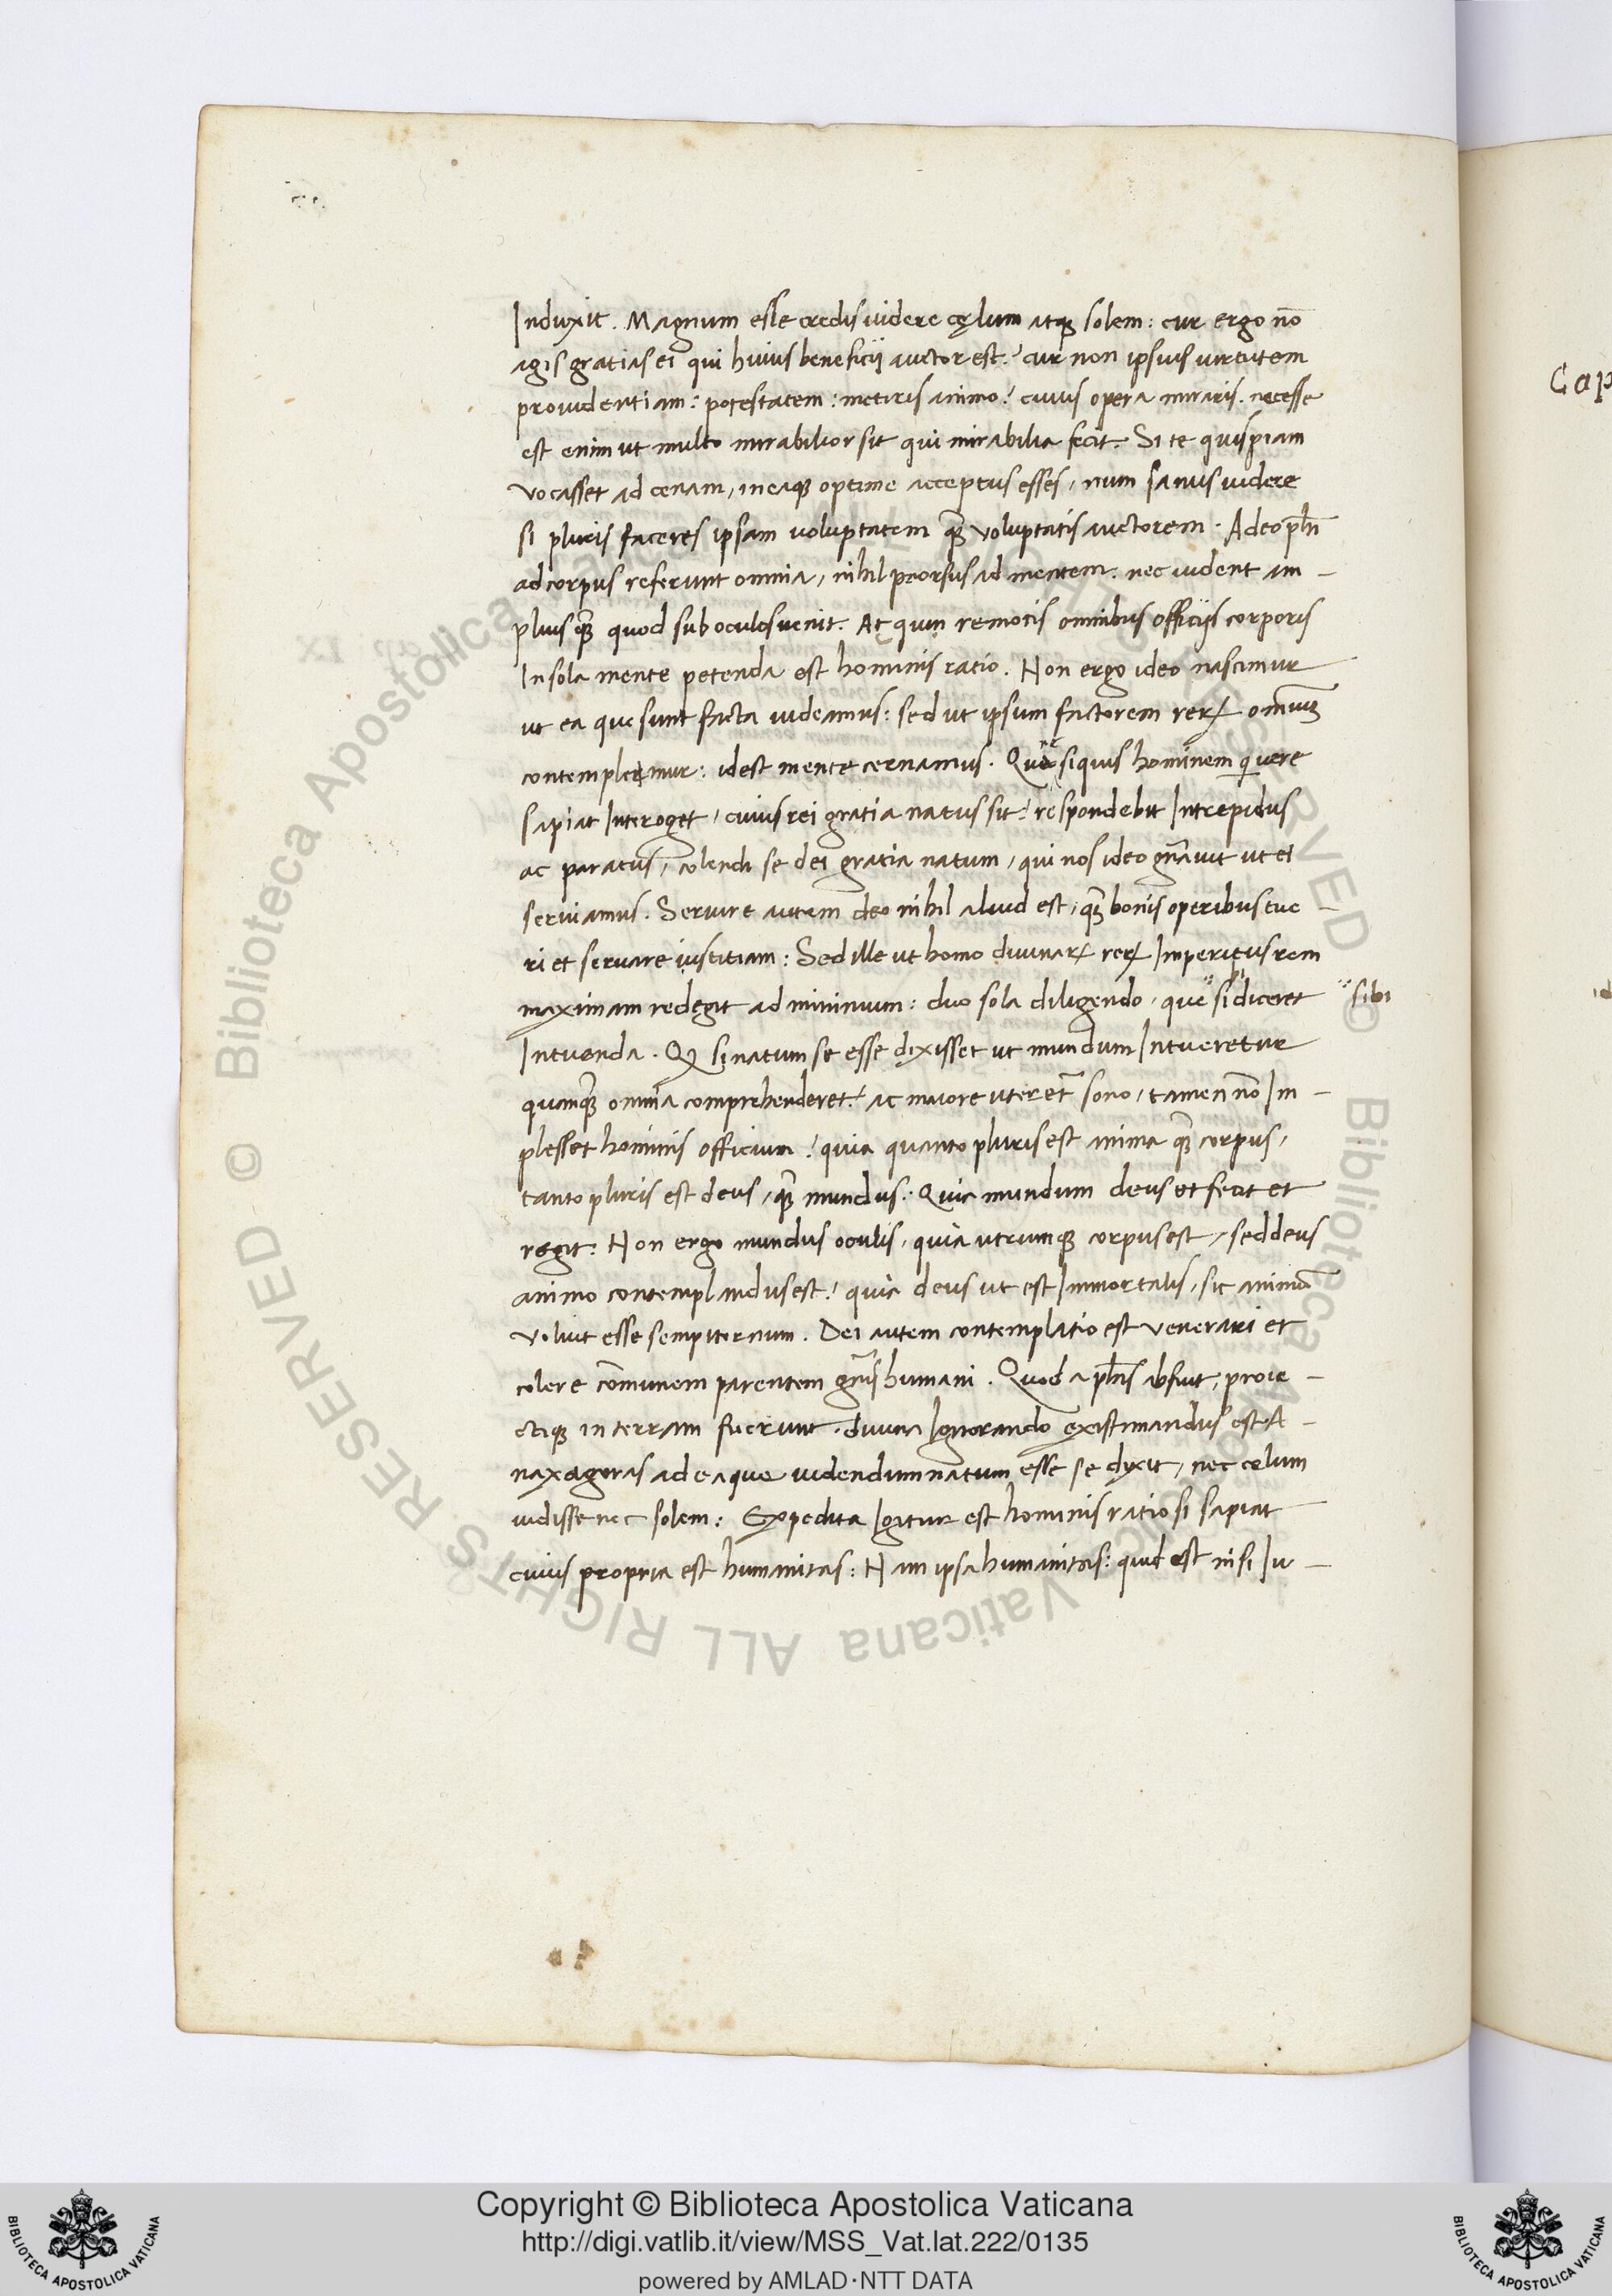 Induxit. Magnum esse credis uidere cęlum atq; solem: cur ergo nō
agis gratias ei qui huius beneficij auctor est? cur non ipsius uirtutem
prouidentiam: potestatem: metiris animo? cuius opera miraris. necesse
est enim ut multo mirabilior sit qui mirabilia fecit. Si te quispiam
vocasset ad cenam, ineaq; optime acceptus esses, num sanus uidere
si pluris faceres ipsam uoluptatem qȝ voluptatis auctorem. Adeo phi
ad corpus referunt omnia, nihil prorsus ad mentem. nec uident am-
plius qȝ quod sub oculos uenit. Atqum remotis omnibus officijs corporis
In sola mente petenda est hominis ratio. Non ergo ideo nascimur
ut ea que sunt facta uideamus: sed ut ipsum factorem rerꝝ omniuȝ
contemplemur: idest mente cernamus. Quare siquis hominem qui uere
sapiat Interoget, cuius rei gratia natus sit? respondebit Intrepidus
ac paratus, colendi se dei gratia natum, qui nos ideo gn̄auit ut ei
seruiamus. Seruire autem deo nihil aliud est, qȝ bonis operibus tue-
ri et seruare iustitiam: Sed ille ut homo diuinarꝝ rerꝝ Imperitus rem
maximam redegit ad minimum: duo sola diligendo, que si diceret
sibi
Intuenda. Qđ si natum se esse dixisset ut mundum Intueretur
quamqȝ omnia comprehenderet? ac maiore uteret̄ sono, tamen nō Im-
plesset hominis officium? quia quanto pluris est anima qȝ corpus,
tanto pluris est deus, qȝ mundus: Quia mundum deus et fecit et
regit: Non ergo mundus oculis, quia utrumq; corpus est, sed deus
animo contemplandus est? quia deus ut est Immortalis, sic animū
voluit esse sempiternum. Dei autem contemplatio est venerari et
colere cōmunem parentem gn̄is humani. Quod a phis abfuit, proie-
ctiq; in terram fuerunt. diuina Ignorando existimandus est A-
naxagoras ad ea que uidendum natum esse se dixit, nec celum
uidisse nec solem: Expedita Igitur est hominis ratio si sapiat
cuius propria est humanitas: Nam ipsa humanitas: quid est nisi Iu-
Cap
id
Copyright © Biblioteca Apostolica Vaticana
http://digi.vatlib.it/view/MSS_Vat.lat.222/0135
powered by AMLAD·NTT DATA